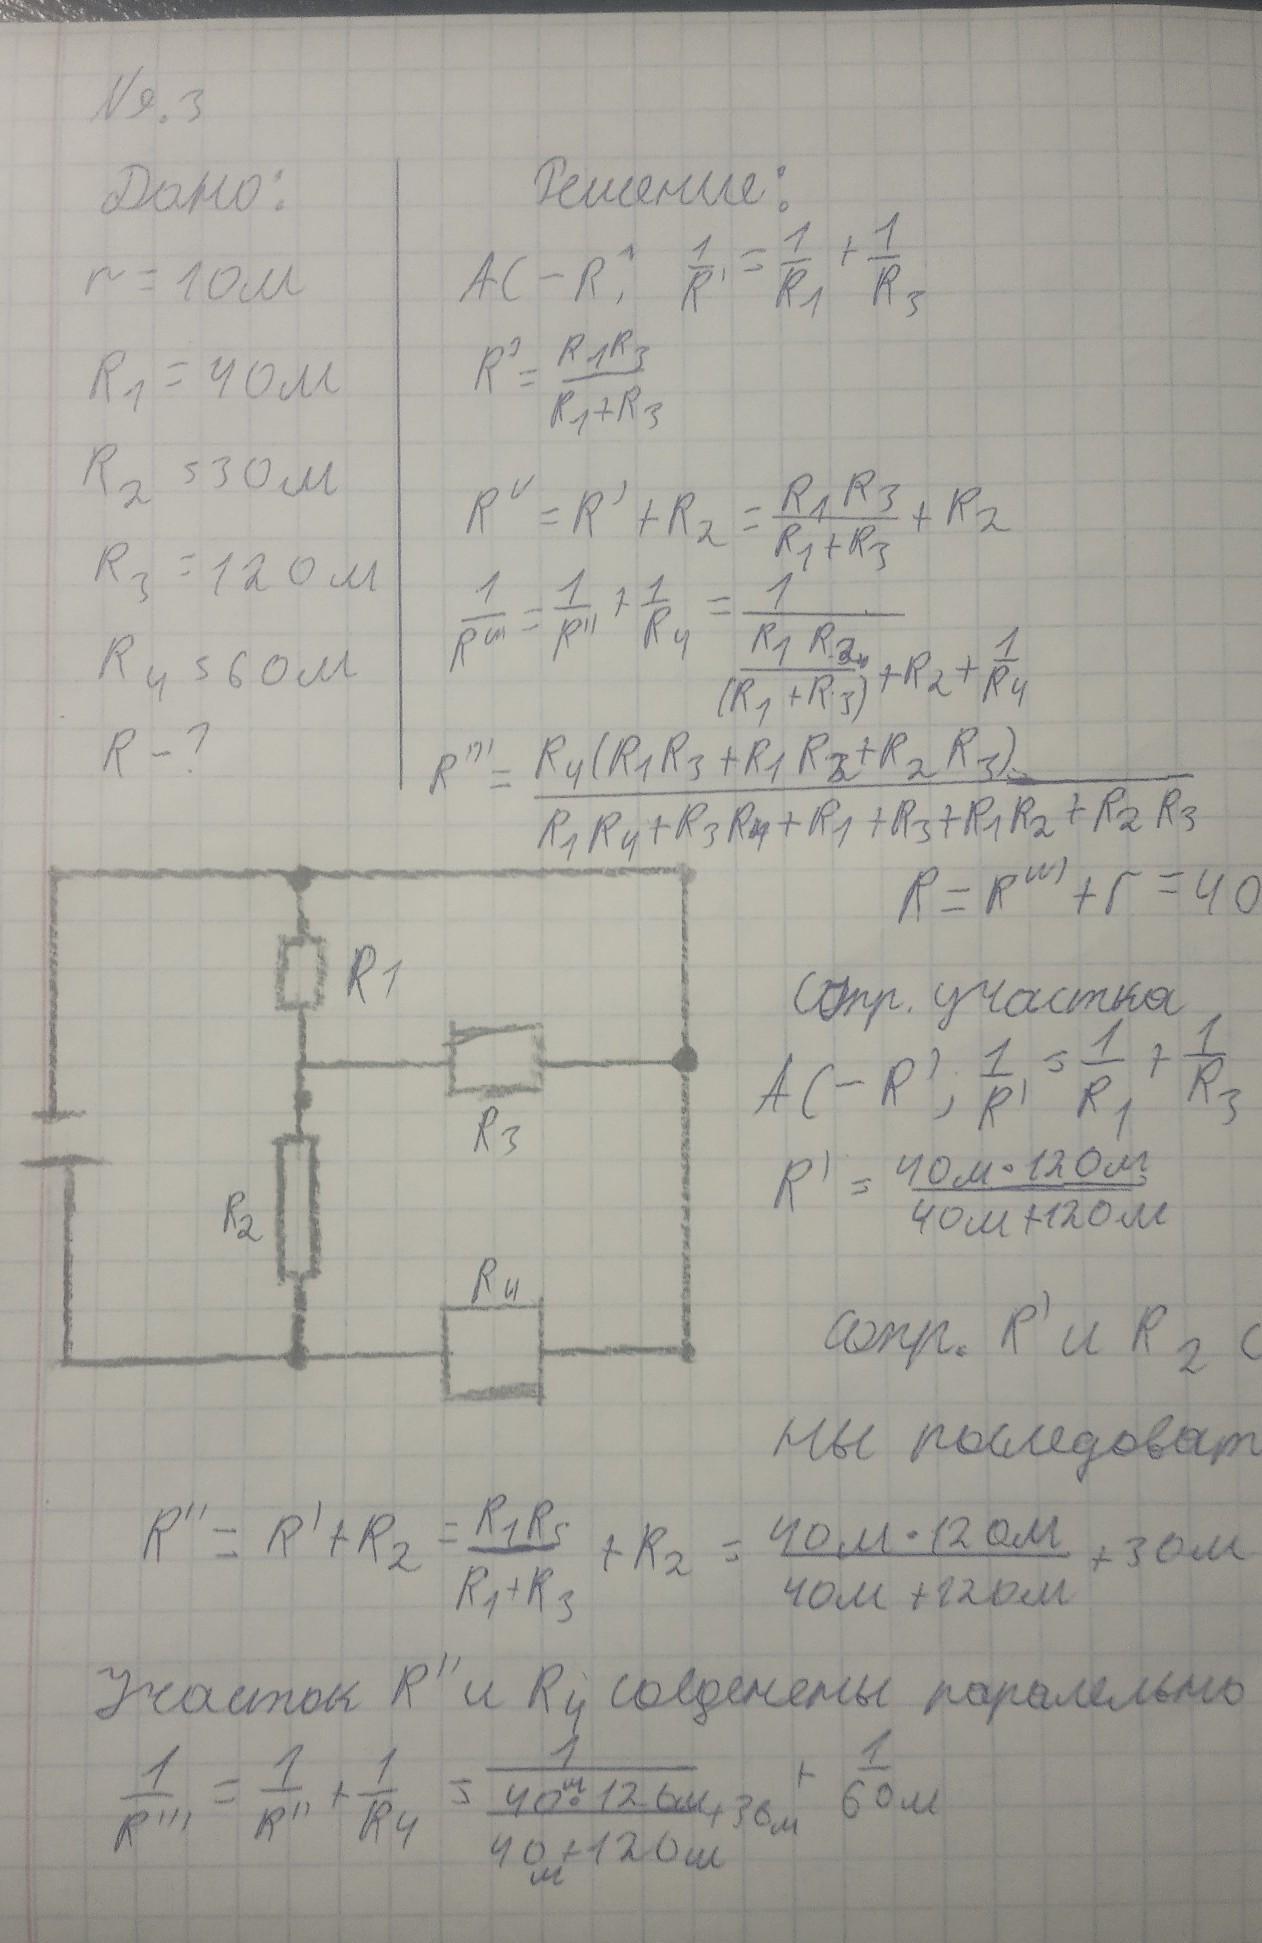 №.3
Дано:
r = 1 Ом
R1 = 4 Ом
R2 = 3 Ом
R3 = 12 Ом
R4 = 6 Ом
R - ?
Решение:
AC - R'; 1/R' = 1/R1 + 1/R3
R' = R1R3/(R1+R3)
R'' = R' + R2 = R1R3/(R1+R3) + R2
1/R''' = 1/R'' + 1/R4 = 1/(R1R3/(R1+R3) + R2 + 1/R4
R''' = R4(R1R3 + R1R2 + R2R3)/(R1R4 + R3R4 + R1 + R3 + R1R2 + R2R3
R = R''' + r = 4 О
R1
R3
R2
R4
Сопр. участка
AC - R'; 1/R' = 1/R1 + 1/R3
R' = 4 Ом · 12 Ом/4 Ом + 12 Ом
сопр. R' и R2 с
ны последоват
R'' = R' + R2 = R1R3/R1+R3 + R2 = 4 Ом · 12 Ом/4 Ом + 12 Ом + 3 Ом
Участок R'' и R4 соеденены паралельно
1/R''' = 1/R'' + 1/R4 = 1/(4 Ом · 12 Ом/4 Ом + 12 Ом + 3 Ом + 1/6 Ом